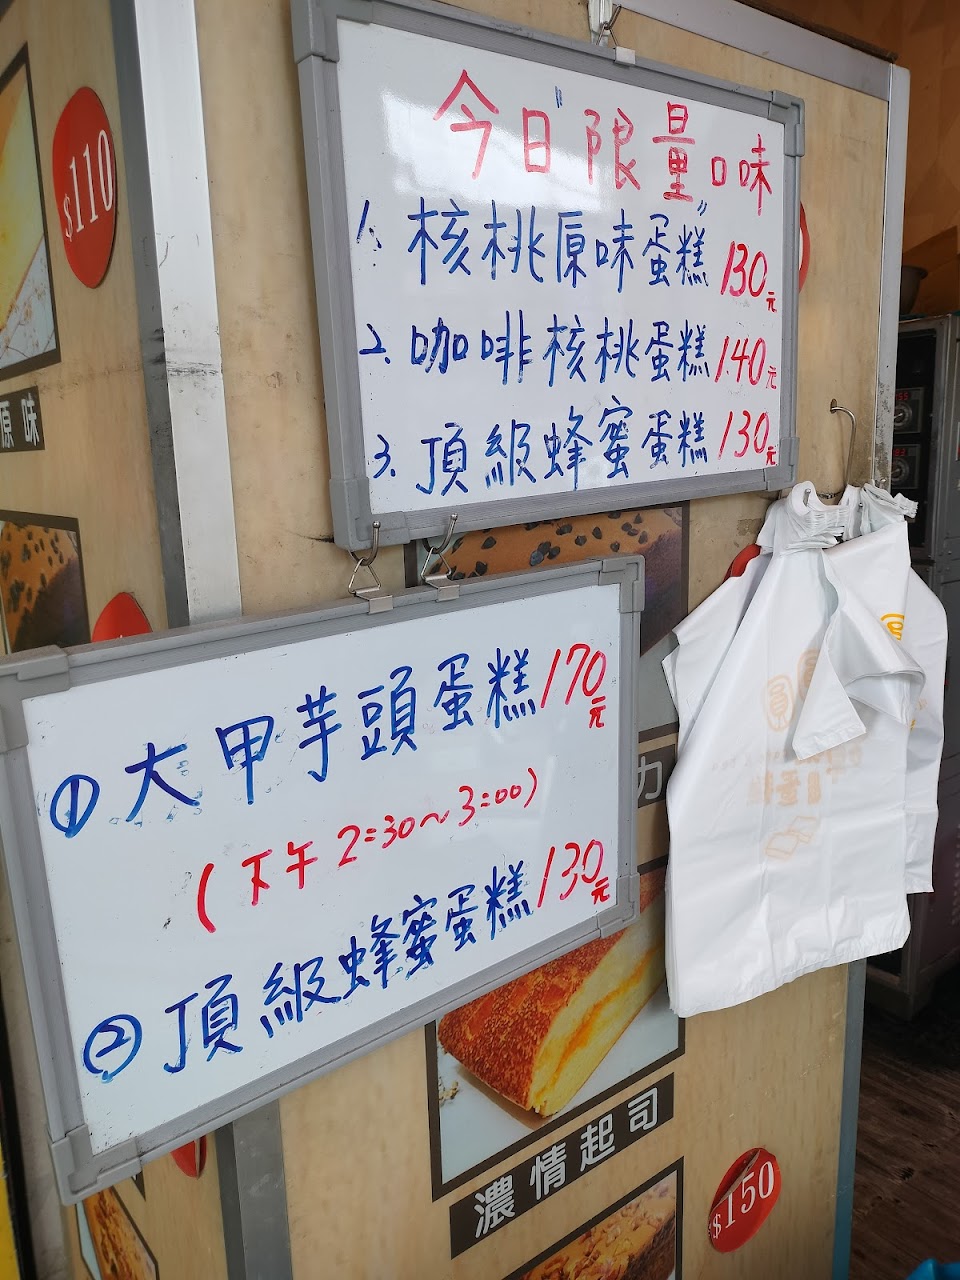 $110
原味
今日"限量"口味
1. 核桃原味蛋糕 130元
2. 咖啡核桃蛋糕 140元
3. 頂級蜂蜜蛋糕 130元
① 大甲芋頭蛋糕 170元
(下午2:30~3:00)
② 頂級蜂蜜蛋糕 130元
力
濃情起司
$150